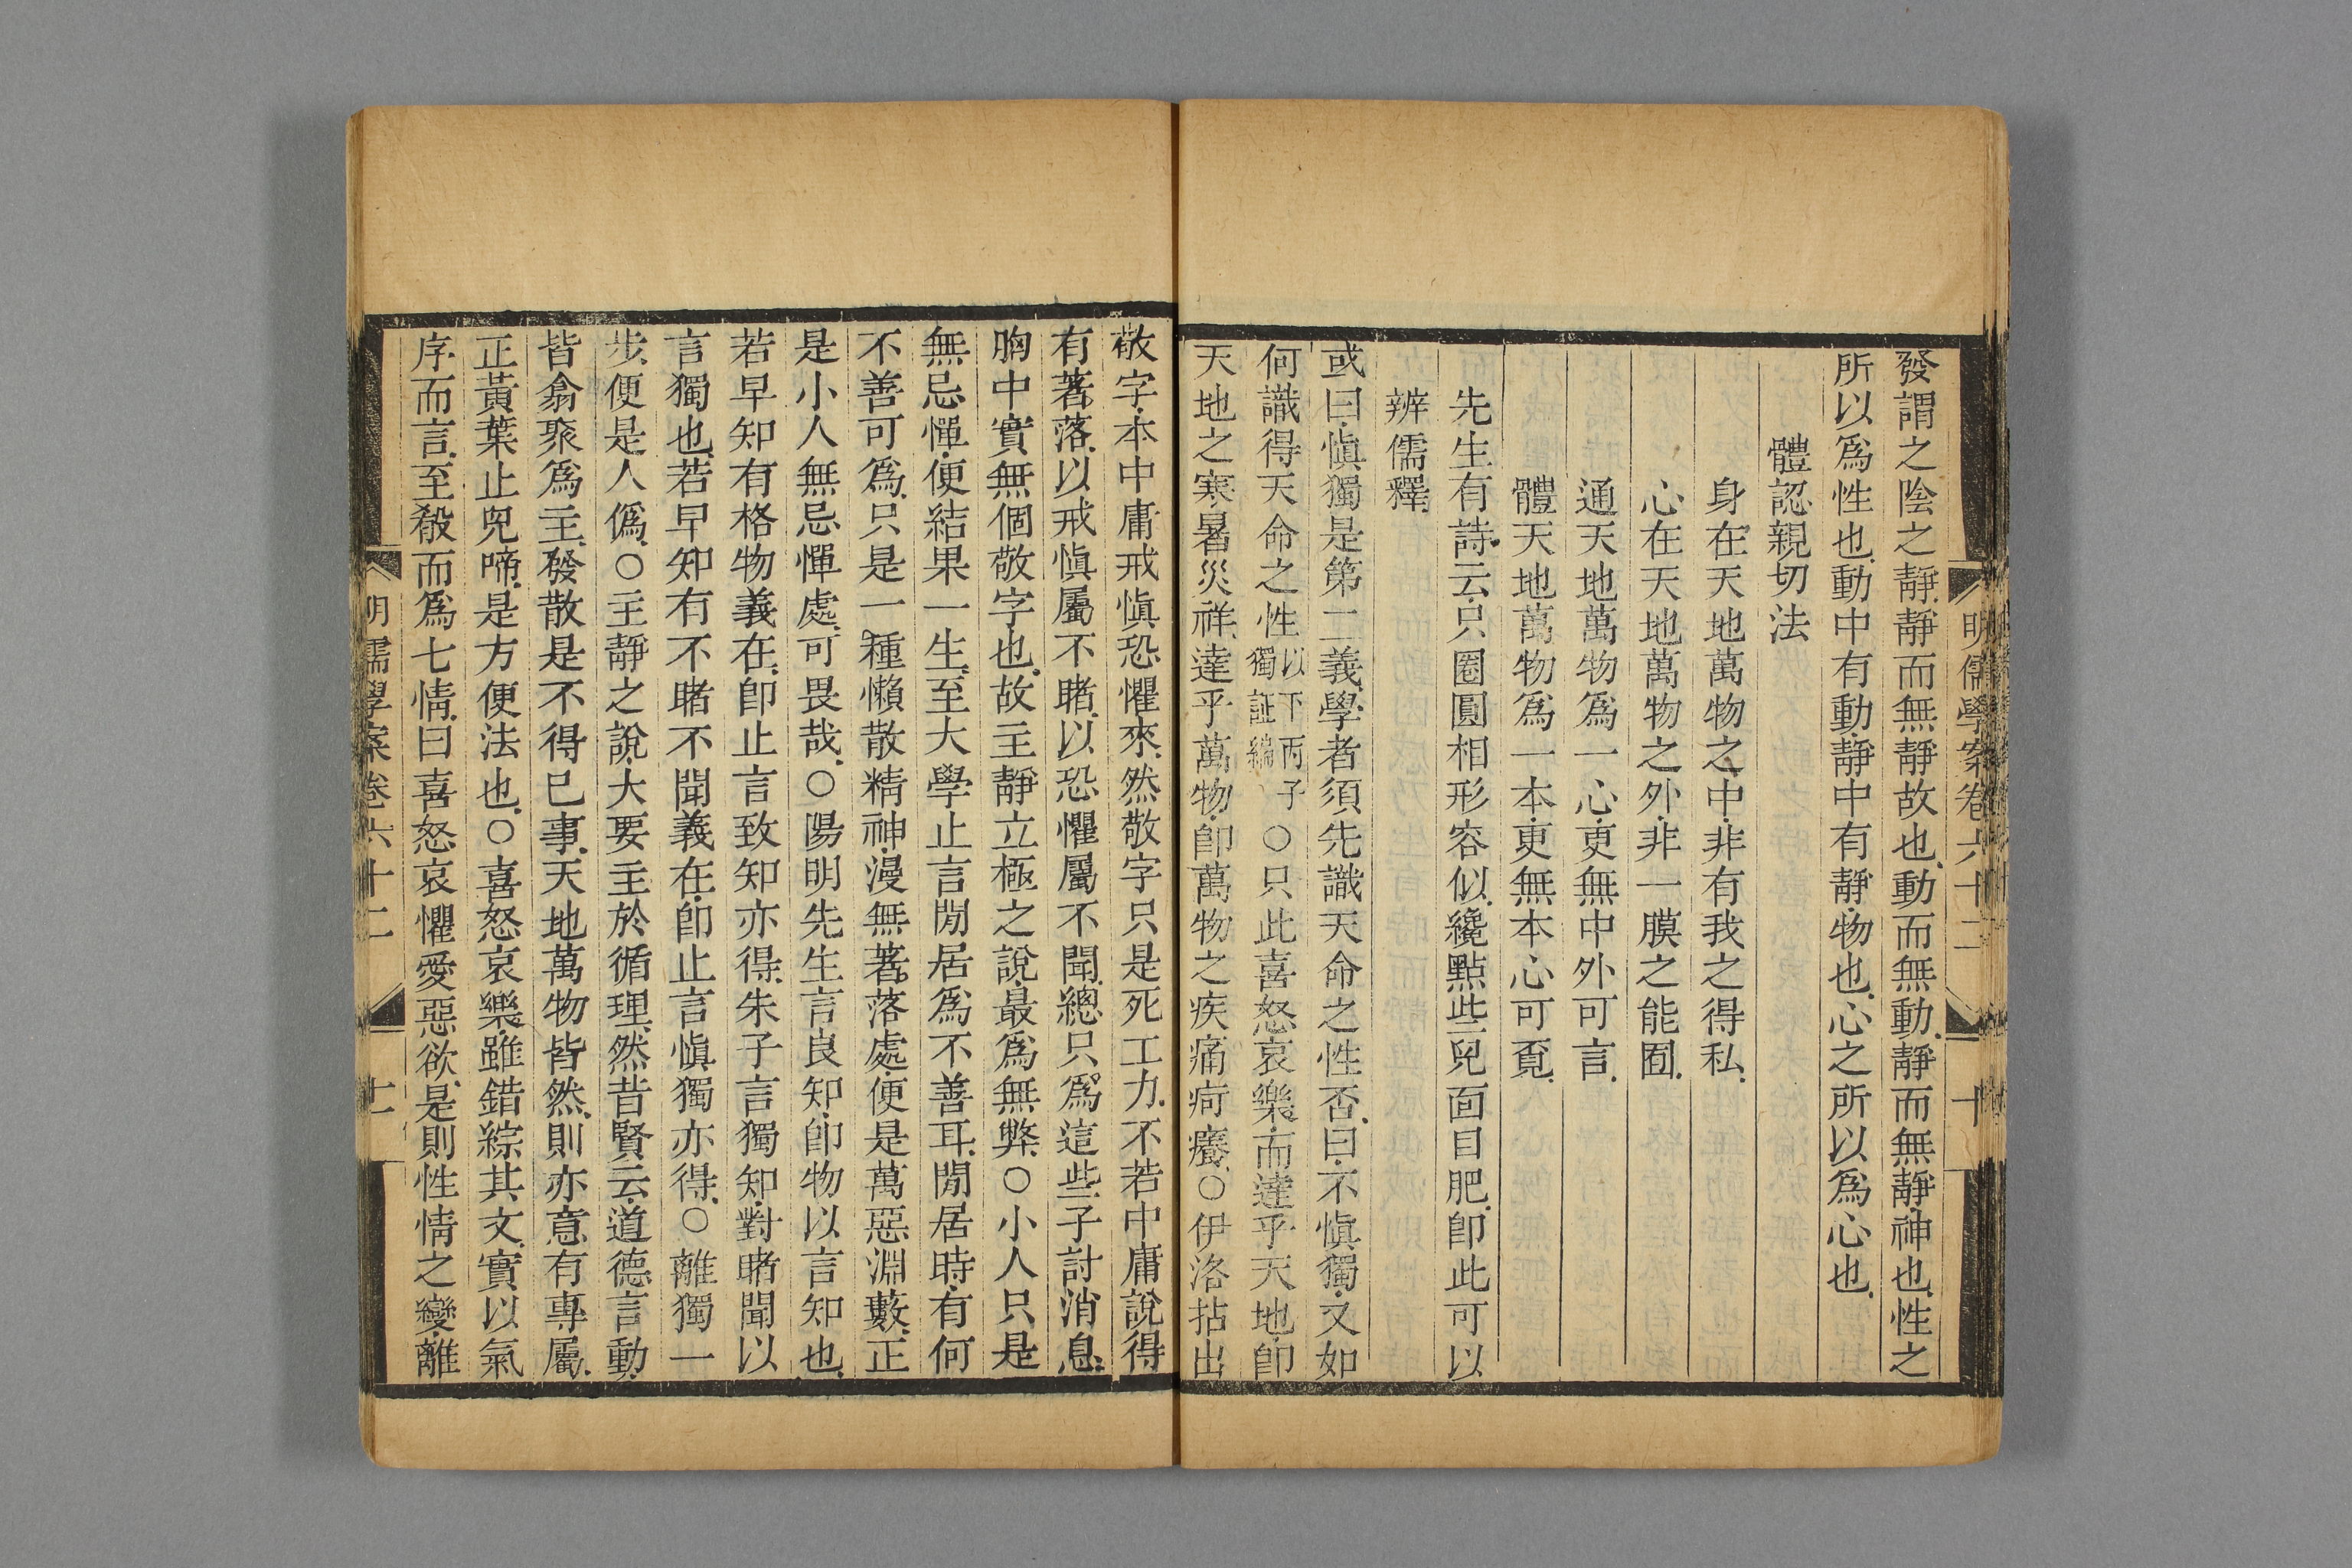 明儒學案卷六十二
十
發謂之陰之靜.靜而無靜故也.動而無動.靜而無靜.神也.性之
所以爲性也.動中有動.靜中有靜.物也.心之所以爲心也.
體認親切法
身在天地萬物之中.非有我之得私.
心在天地萬物之外.非一膜之能囿.
通天地萬物爲一心.更無中外可言.
體天地萬物爲一本.更無本心可覓.
先生有詩云.只圈圓相形容似.纔點些兒面目肥.卽此可以
辨儒釋.
或曰.愼獨是第二義.學者須先識天命之性否.曰.不愼獨.又如
何識得天命之性以下丙子獨証編○只此喜怒哀樂.而達乎天地.卽
天地之寒暑災祥.達乎萬物.卽萬物之疾痛疴癢.○伊洛拈出
敬字.本中庸戒愼恐懼來.然敬字只是死工力.不若中庸說得
有著落.以戒愼屬不睹.以恐懼屬不聞.總只爲這些子討消息.
胸中實無個敬字也.故主靜立極之說.最爲無弊.○小人只是
無忌憚.便結果一生.至大學止言閒居爲不善耳.閒居時.有何
不善可爲.只是一種懶散精神.漫無著落處.便是萬惡淵藪.正
是小人無忌憚處.可畏哉.○陽明先生言良知.卽物以言知也.
若早知有格物義在.卽止言致知亦得.朱子言獨知.對睹聞以
言獨也.若早知有不睹不聞義在.卽止言愼獨亦得.○離獨一
步.便是人僞.○主靜之說.大要主於循理.然昔賢云.道德言動.
皆翕聚爲主.發散是不得已事.天地萬物皆然.則亦意有專屬.
正黃葉止兒啼.是方便法也.○喜怒哀樂.雖錯綜其文.實以氣
序而言.至殽而爲七情.曰喜怒哀懼愛惡欲.是則性情之變.離
明儒學案卷六十二
十一